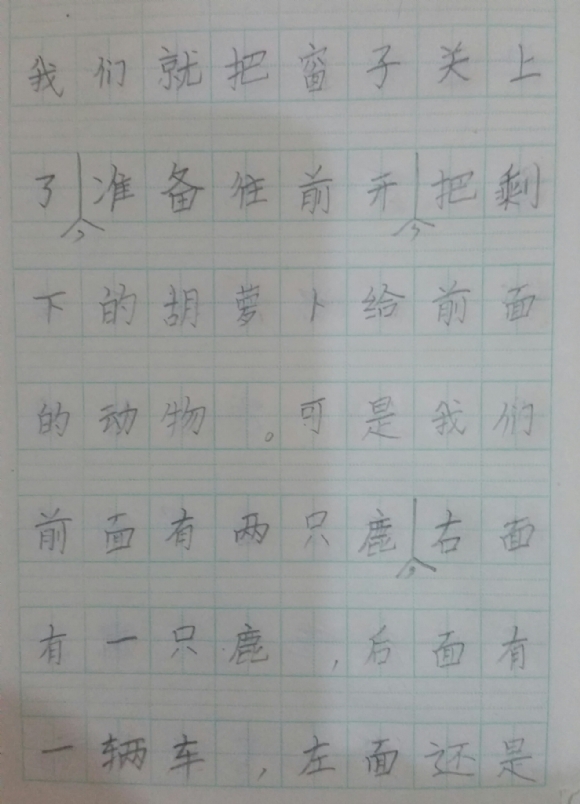 我们就把窗子关上
了，准备往前开，把剩
下的胡萝卜给前面
的动物。可是我们
前面有两只鹿，右面
有一只鹿，后面有
一辆车，左面还是